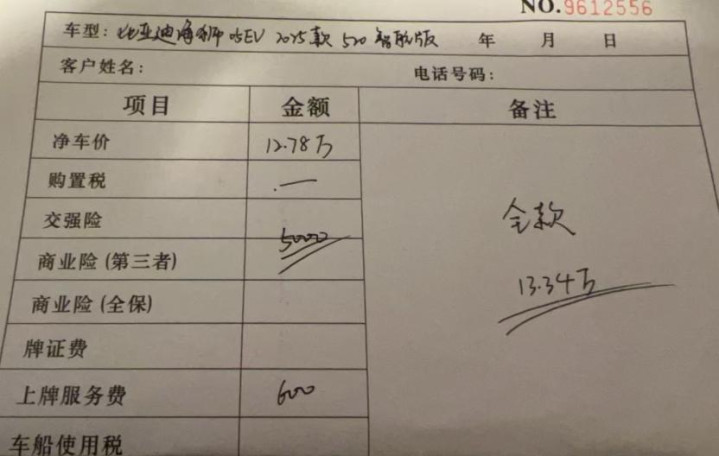 NO.9612556
车型: 比亚迪海狮05EV 2025款 520 智航版 年 月 日
客户姓名: 电话号码:
项目 金额 备注
净车价 12.78万
购置税 —
交强险
5000
商业险 (第三者)
商业险 (全保)
牌证费
上牌服务费 600
车船使用税
全款
13.34万